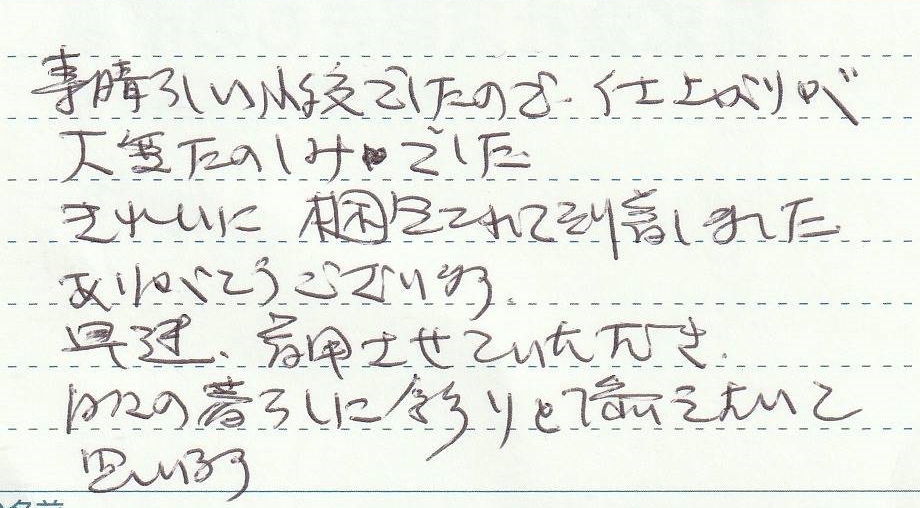 素晴らしい小紋でしたので、仕上がりが
大変たのしみでした
きれいに 梱包されて到着しました
ありがとうございます。
早速、着用させていただき、
日々の暮らしに彩りを添えたいと
思います
お名前